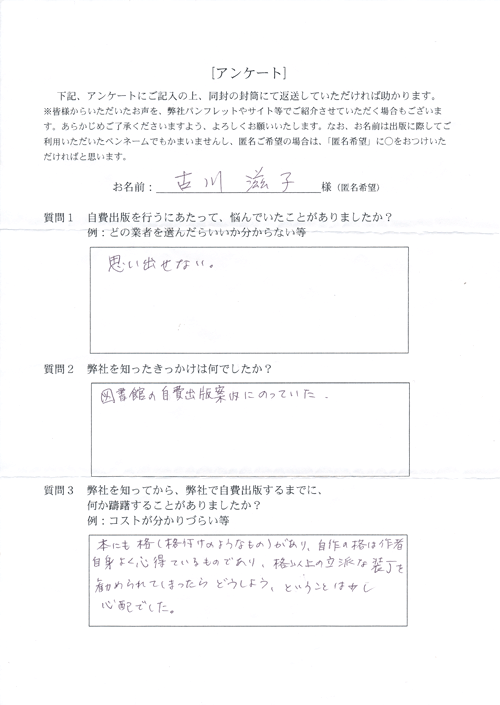 [アンケート]
下記、アンケートにご記入の上、同封の封筒にて返送していただければ助かります。
※皆様からいただいたお声を、弊社パンフレットやサイト等でご紹介させていただく場合もございま
す。あらかじめご了承くださいますよう、よろしくお願いいたします。なお、お名前は出版に際してご
利用いただいたペンネームでもかまいませんし、匿名ご希望の場合は、「匿名希望」に○をおつけいた
だければと思います。
お名前：古川 滋子様（匿名希望）
質問１ 自費出版を行うにあたって、悩んでいたことがありましたか？
例：どの業者を選んだらいいか分からない等
思い出せない。
質問２ 弊社を知ったきっかけは何でしたか？
図書館の自費出版案内にのっていた.
質問３ 弊社を知ってから、弊社で自費出版するまでに、
何か躊躇することがありましたか？
例：コストが分かりづらい等
本にも格(格付けのようなもの)があり、自作の格は作者
自身よく心得ているものであり、格以上の立派な装丁を
勧められてしまったらどうしよう、ということは少し
心配でした。